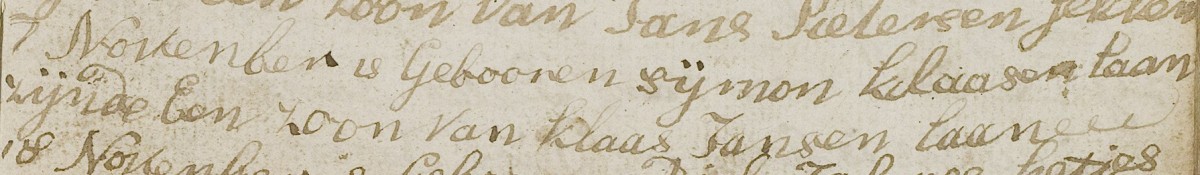 een zoon van Jans Pietersen
7 November is Gebooren sijmon klaasen taan
zijnde Een zoon van klaas Jansen taan
18 November is